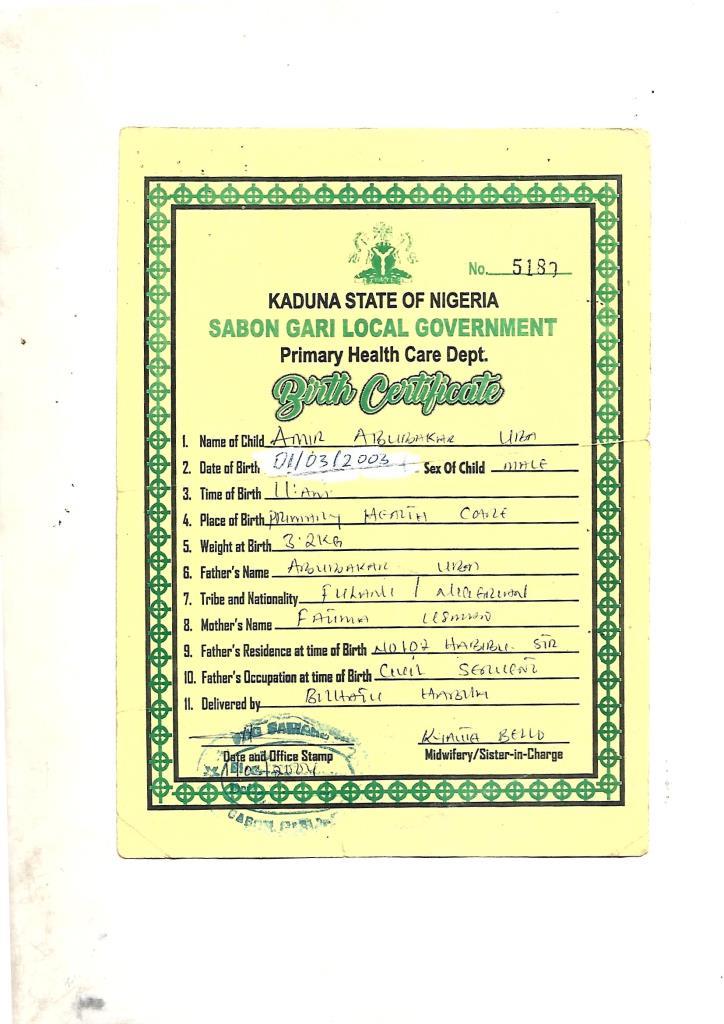 No. 5187
KADUNA STATE OF NIGERIA
SABON GARI LOCAL GOVERNMENT
Primary Health Care Dept.
Birth Certificate
1. Name of Child AMIR ABUBAKAR UBA
2. Date of Birth 01/03/2003 Sex Of Child MALE
3. Time of Birth 11:am
4. Place of Birth PRIMARY HEALTH CARE
5. Weight at Birth 3.2KG
6. Father's Name ABUBAKAR UBA
7. Tribe and Nationality FULANI / NIGERIAN
8. Mother's Name FATIMA USMAN
9. Father's Residence at time of Birth NO107 HABIBU STR
10. Father's Occupation at time of Birth CIVIL SERVENT
11. Delivered by BILHATU
BELLO
Date and Office Stamp Midwifery/Sister-in-Charge